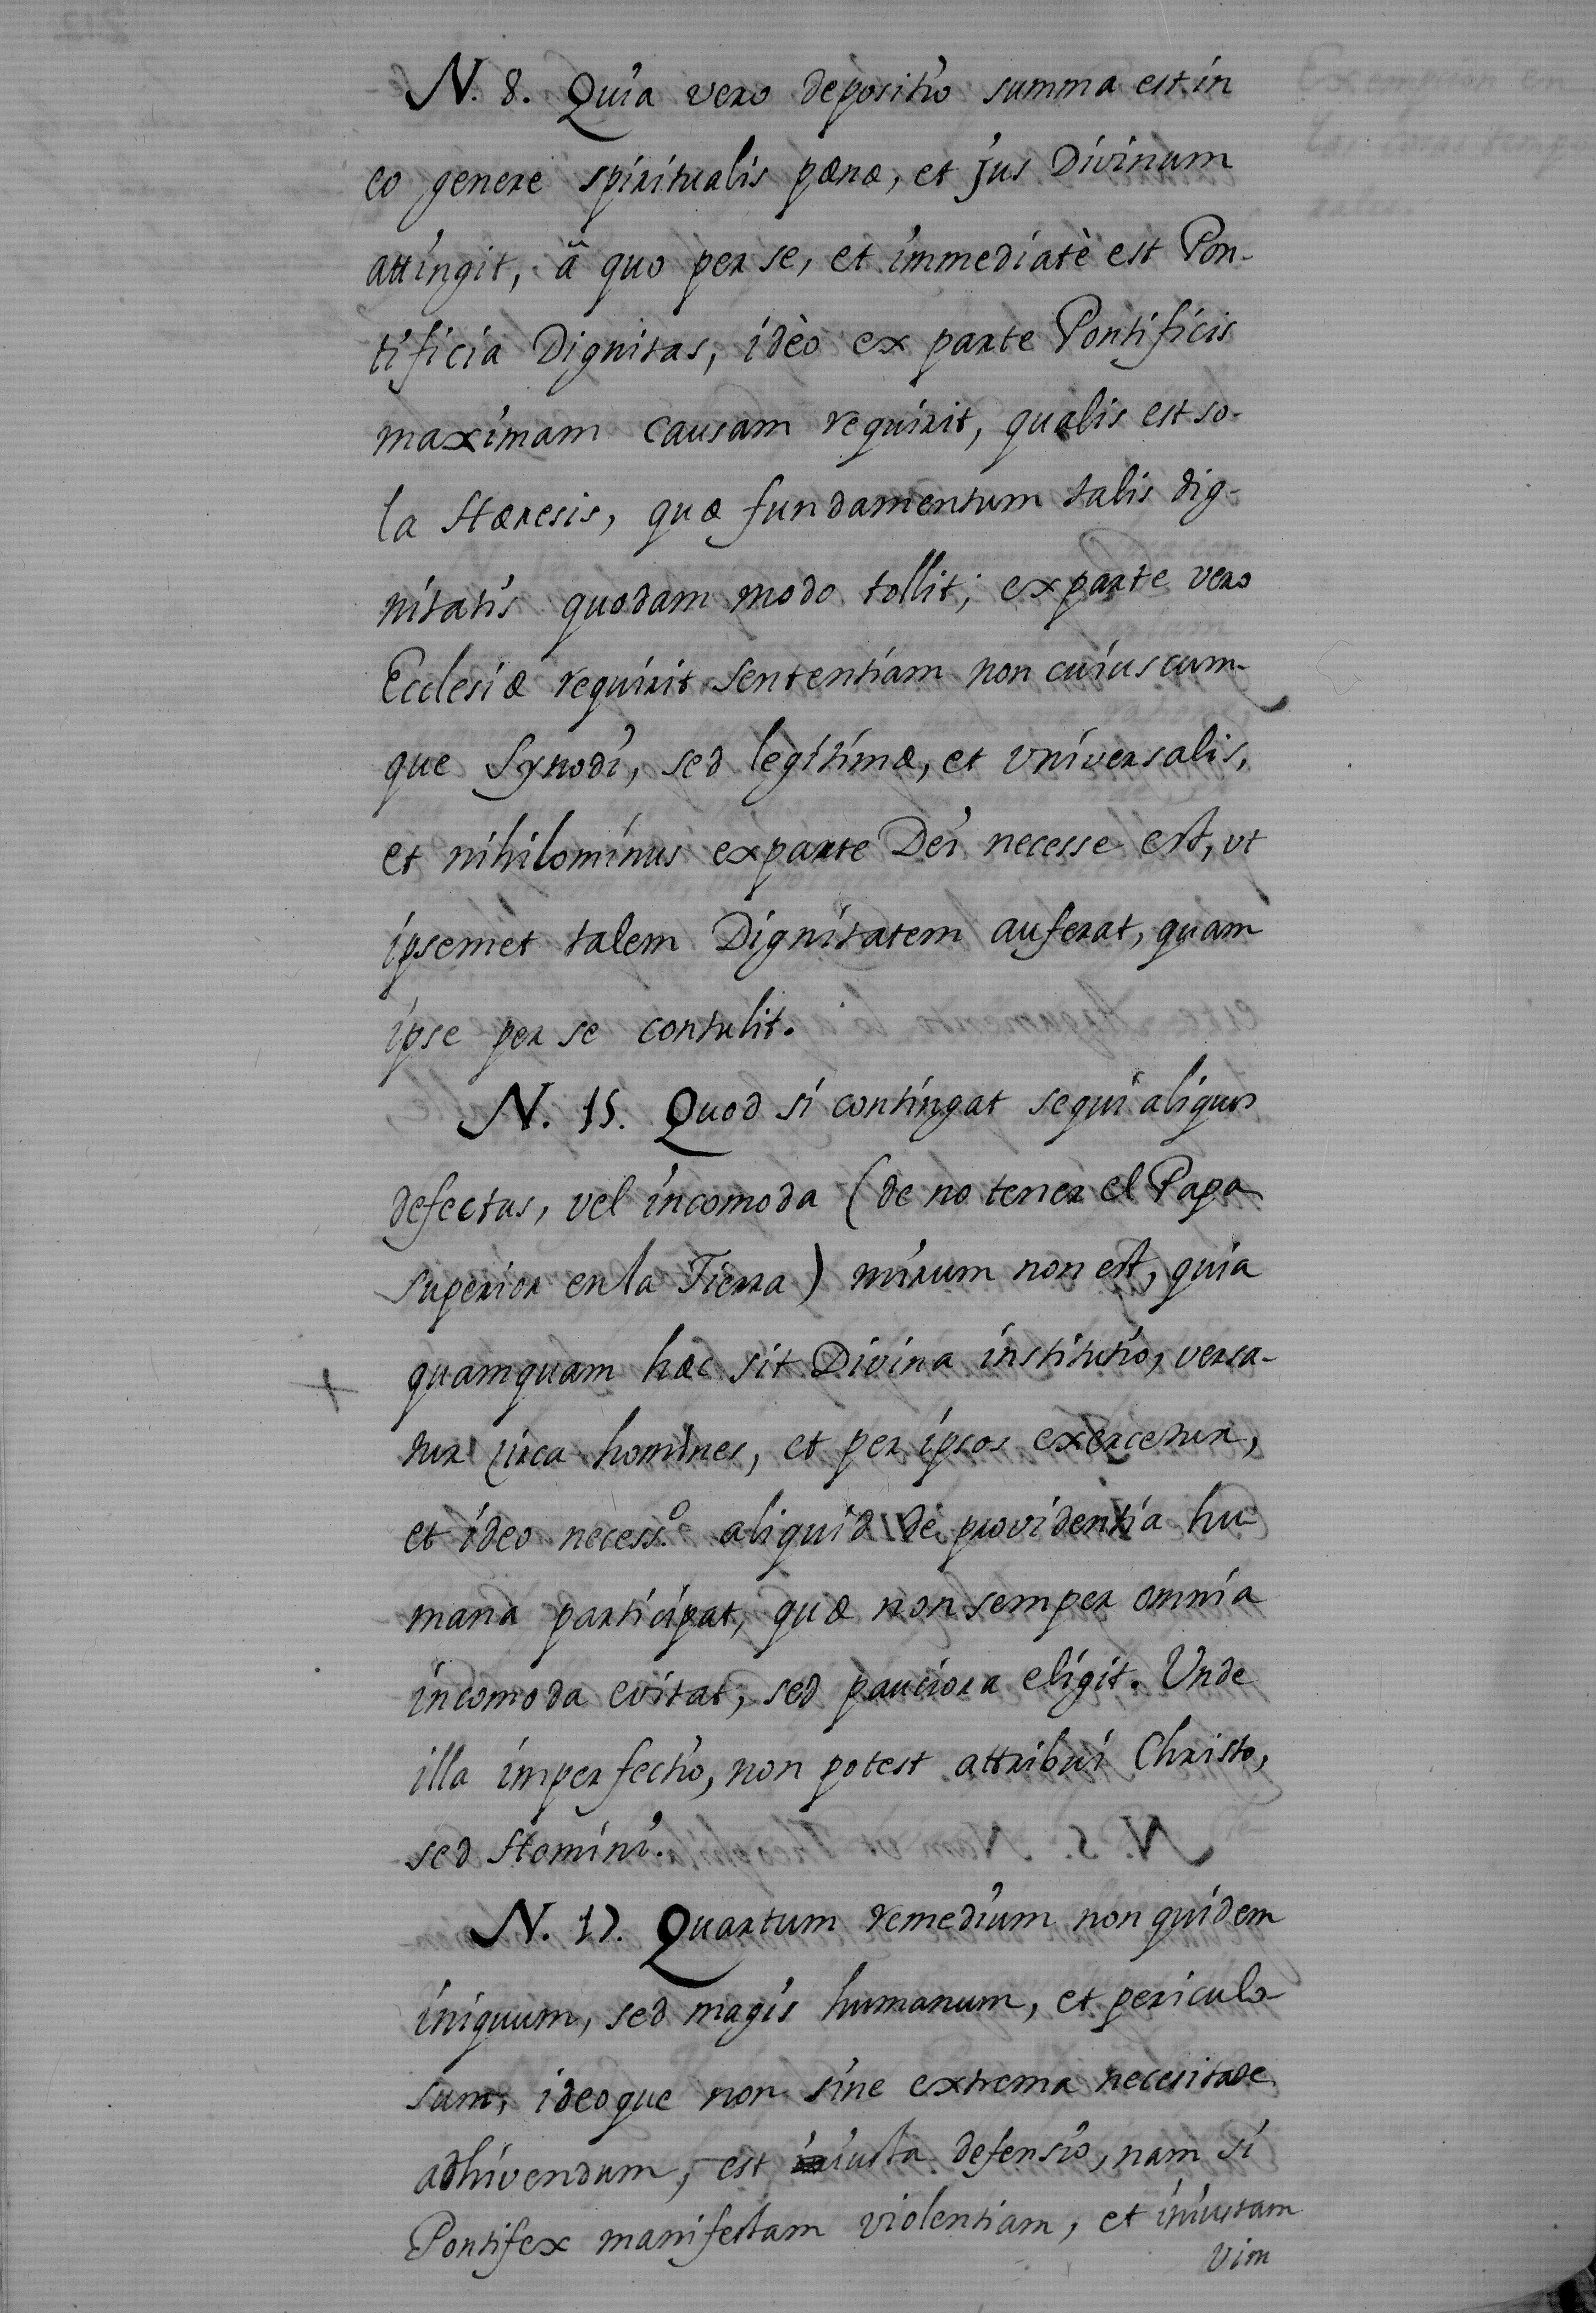 N. 8. Quia vero depositio summa est in
eo genere spiritualis pœnæ, et jus Divinum
attingit, â quo per se, et immediatè est Pon-
tificia Dignitas, idèo ex parte Pontificis
maximam causam requirit, qualis est so-
la Hæresis, quæ fundamentum talis dig-
nitatis quodam modo tollit; ex parte vero
Ecclesiæ requirit sententiam non cuiuscum-
que Synodi, sed legitimæ, et vniversalis,
et nihilominus exparte Dei necesse est, vt
ipsemet talem Dignitatem auferat, quam
ipse per se contulit.
N. 15. Quod si contingat sequi aliquos
defectus, vel incomoda (de no tener el Papa
superior en la Tierra) mirum non est, quia
quamquam hæc sit Divina institutio, versa-
tur circa homines, et per ipsos exercetur,
et ideo necess.º aliquid de providentia hu
mana participat, quæ non semper omnia
incomoda evitat, sed pauciora eligit. Unde
illa imperfectio, non potest attribui Christo,
sed Homini.
N. 17. Quartum remedium non quidem
iniquum, sed magis humanum, et periculo-
sum, ideoque non sine extrema necesitate
adhivendum, est iusta defensio, nam si
Pontifex manifestam violentiam, et iniustam
vim